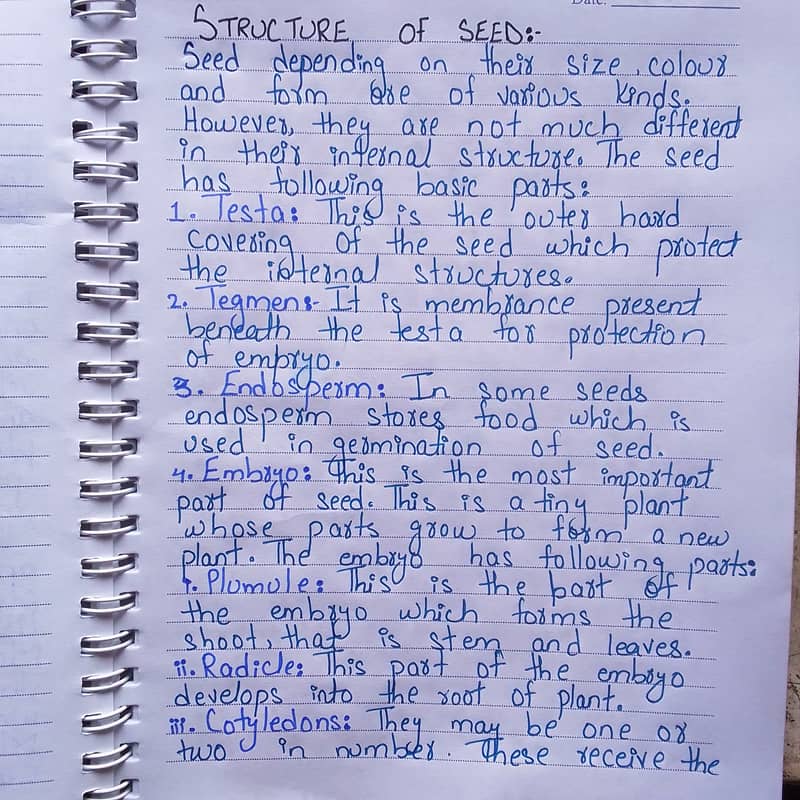 Date:
STRUCTURE OF SEED:-
Seed depending on their size, colour
and form are of various kinds.
However, they are not much different
in their internal structure. The seed
has following basic parts:
1. Testa: This is the outer hard
covering of the seed which protect
the internal structures.
2. Tegmen:- It is membrance present
beneath the testa for protection
of embryo.
3. Endosperm: In some seeds
endosperm stores food which is
used in germination of seed.
4. Embryo: This is the most important
part of seed. This is a tiny plant
whose parts grow to form a new
plant. The embryo has following parts:
i. Plumule: This is the part of
the embryo which forms the
shoot, that is stem and leaves.
ii. Radicle: This part of the embryo
develops into the root of plant.
iii. Cotyledons: They may be one or
two in number. These receive the